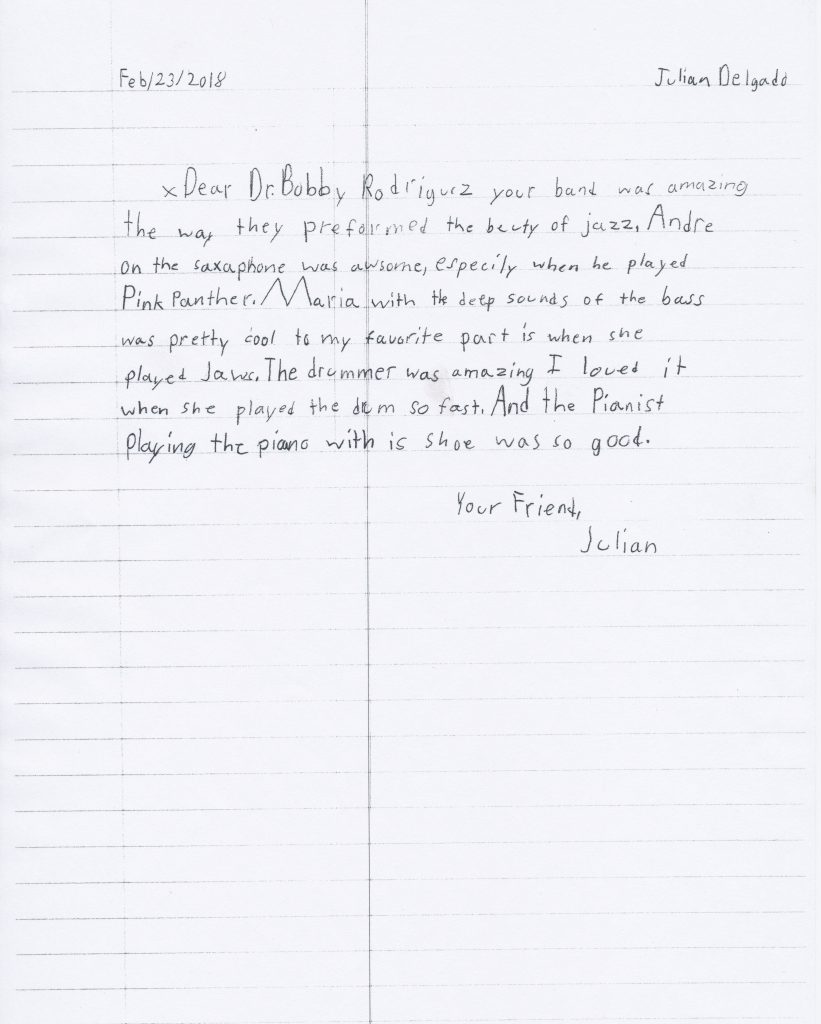 Feb/23/2018 Julian Delgado
x Dear Dr. Bobby Rodriguez your band was amazing
the way they preformed the beuty of jazz, Andre
on the saxaphone was awsome, especily when he played
Pink Panther. Maria with the deep sounds of the bass
was pretty cool to my favorite part is when she
played Jaws. The drummer was amazing I loved it
when she played the drum so fast. And the Pianist
Playing the piano with is shoe was so good.
Your Friend,
Julian